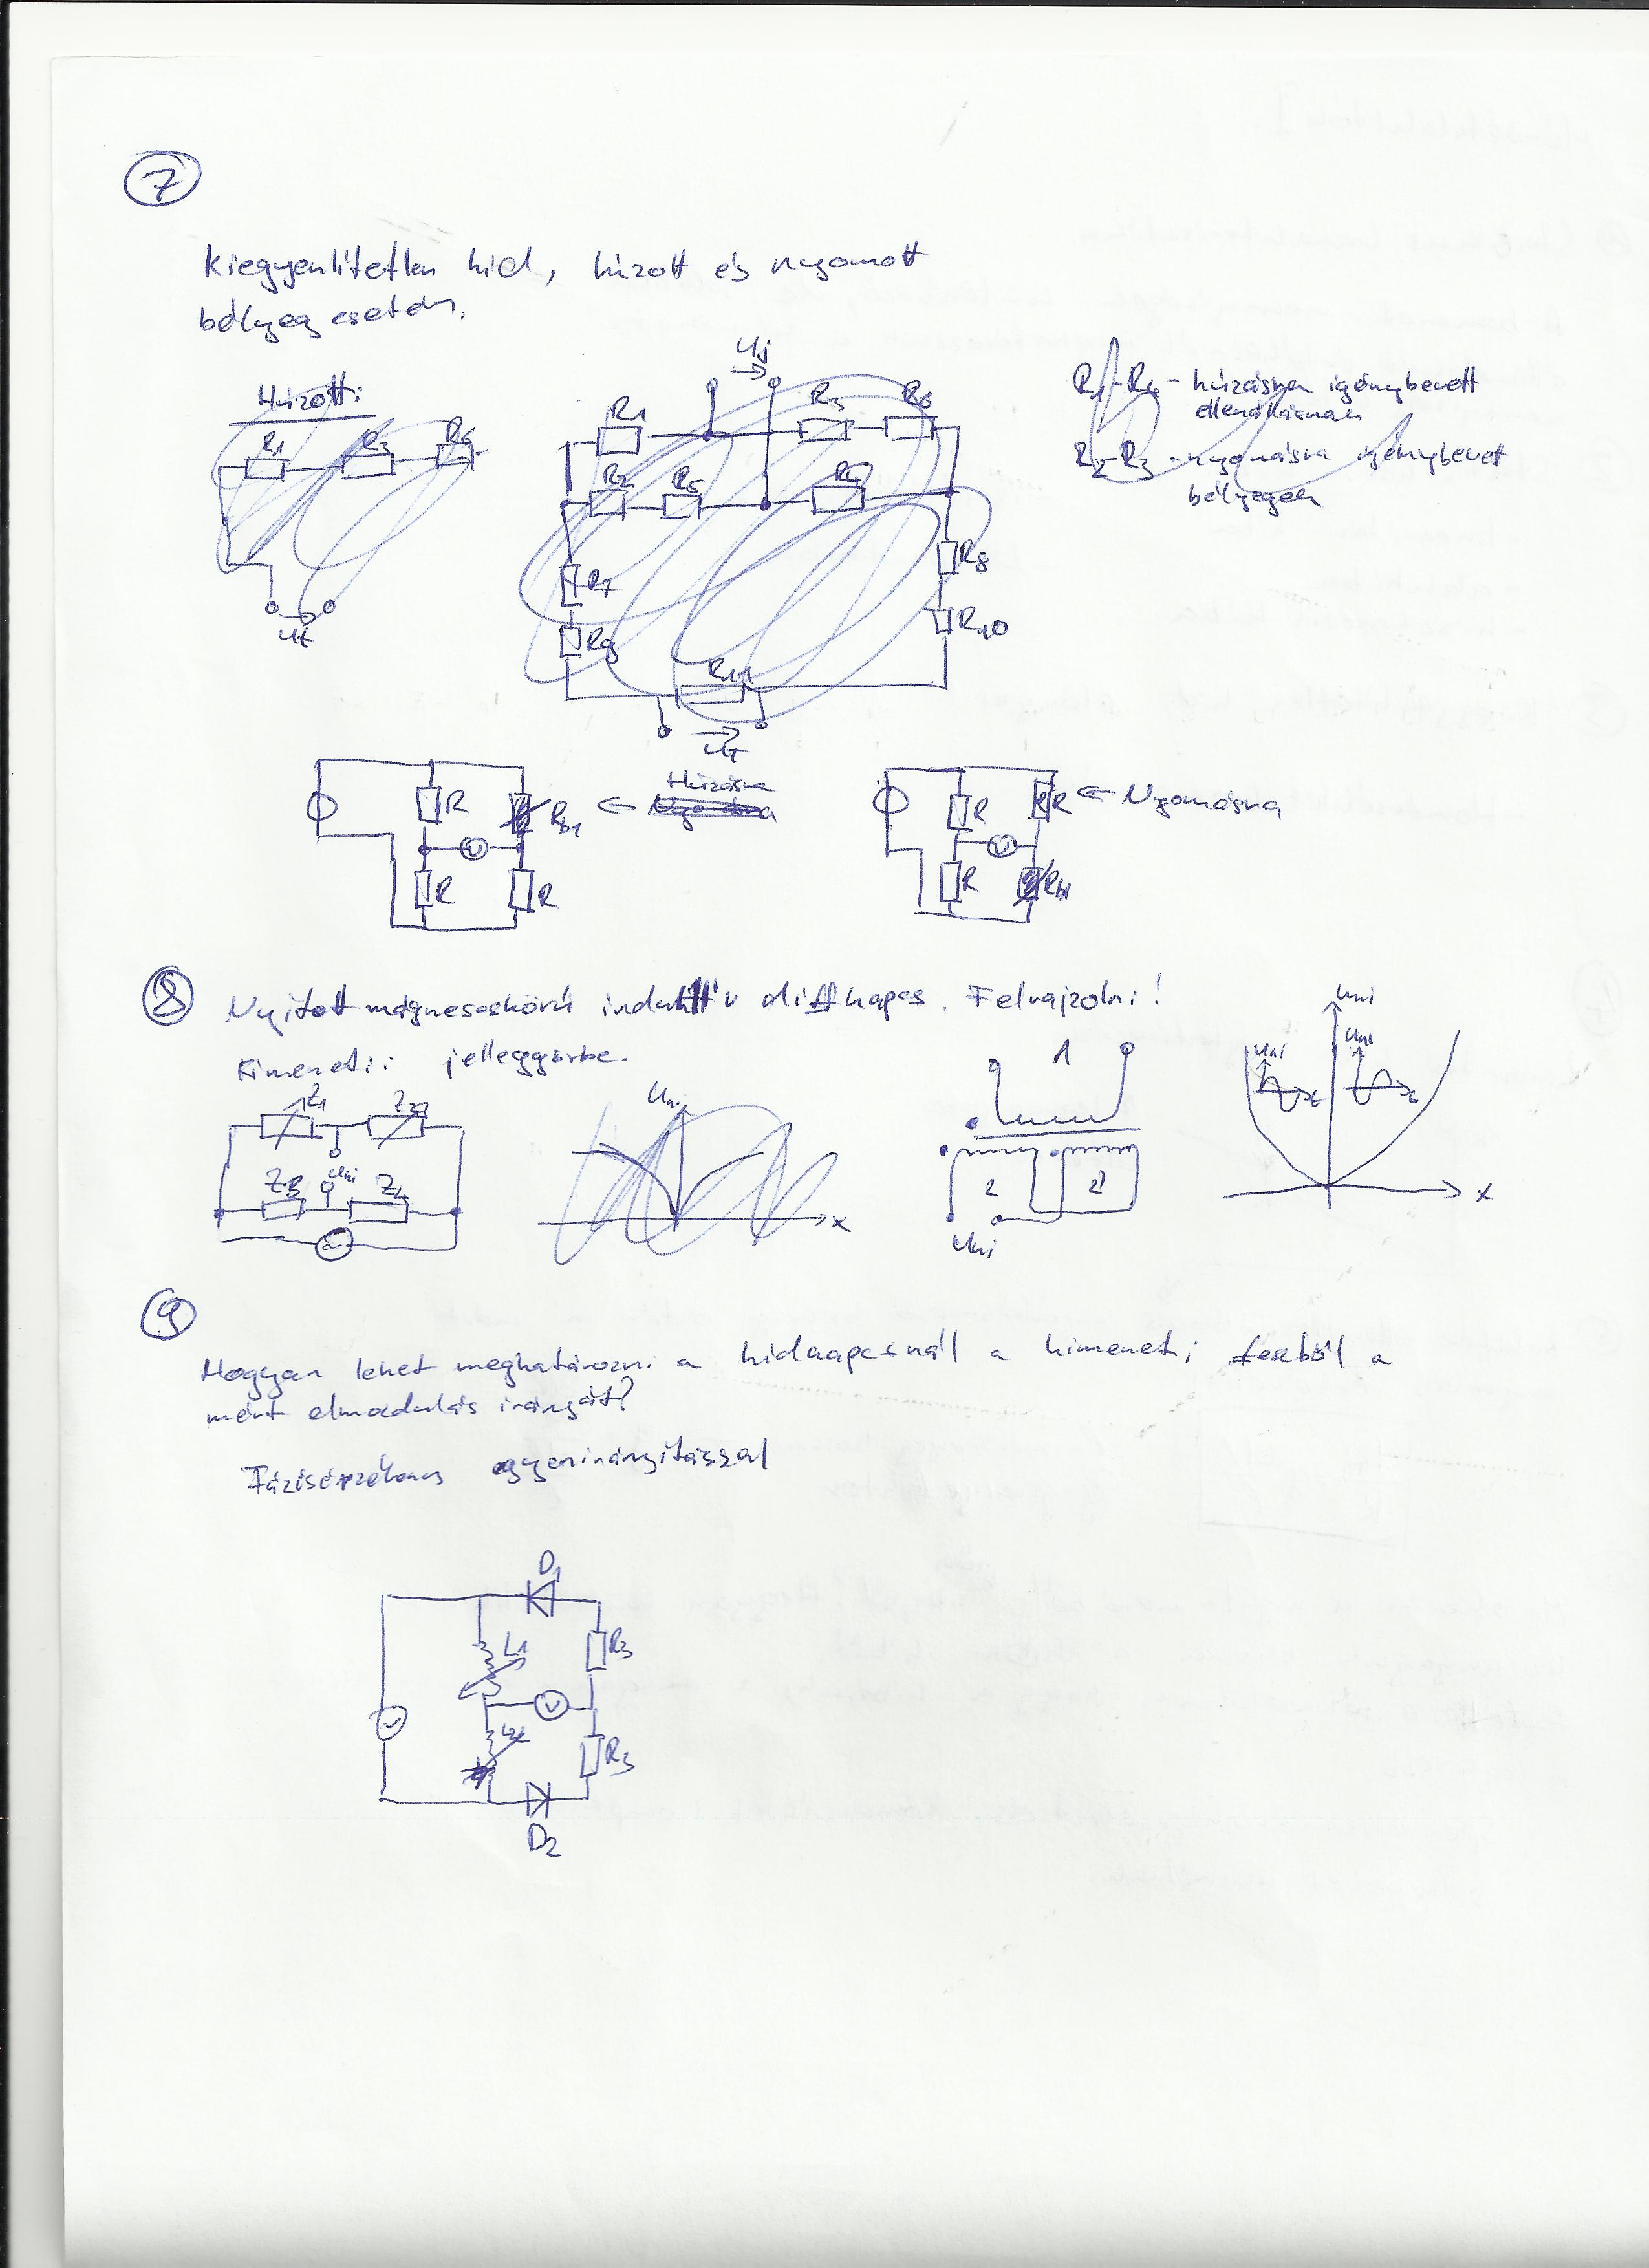 7
Kiegyenlítetlen híd, húzott és nyomott
bélyeg esetén.
Húzott:
R1 R3 R6
Ut
Uj
R1 R5 R6
R2 R5
R7 R8
R9 R10
R11
UT
R1-R4 - húzásra igénybevett
ellenállásnak
R2-R3 - nyomásra igénybevet
bélyegek
R Rb1 ← Húzásra
R R
V
R R ← Nyomásra
R Rb1
V
8 Nyitott mágneseskörű induktív diffkapcs. Felrajzolni!
Kimeneti: jelleggörbe.
Z1 Z2
Z3 Uki Z4
Uki
x
1
2 2'
Uki
Uki
Uki Uki
t t
x
9
Hogyan lehet meghatározni a hídkapcsnál a kimeneti feszből a
mért elmozdulás irányát?
Fázisérzékeny egyenirányítással
D1
L1 R3
V
L2 R3
D2